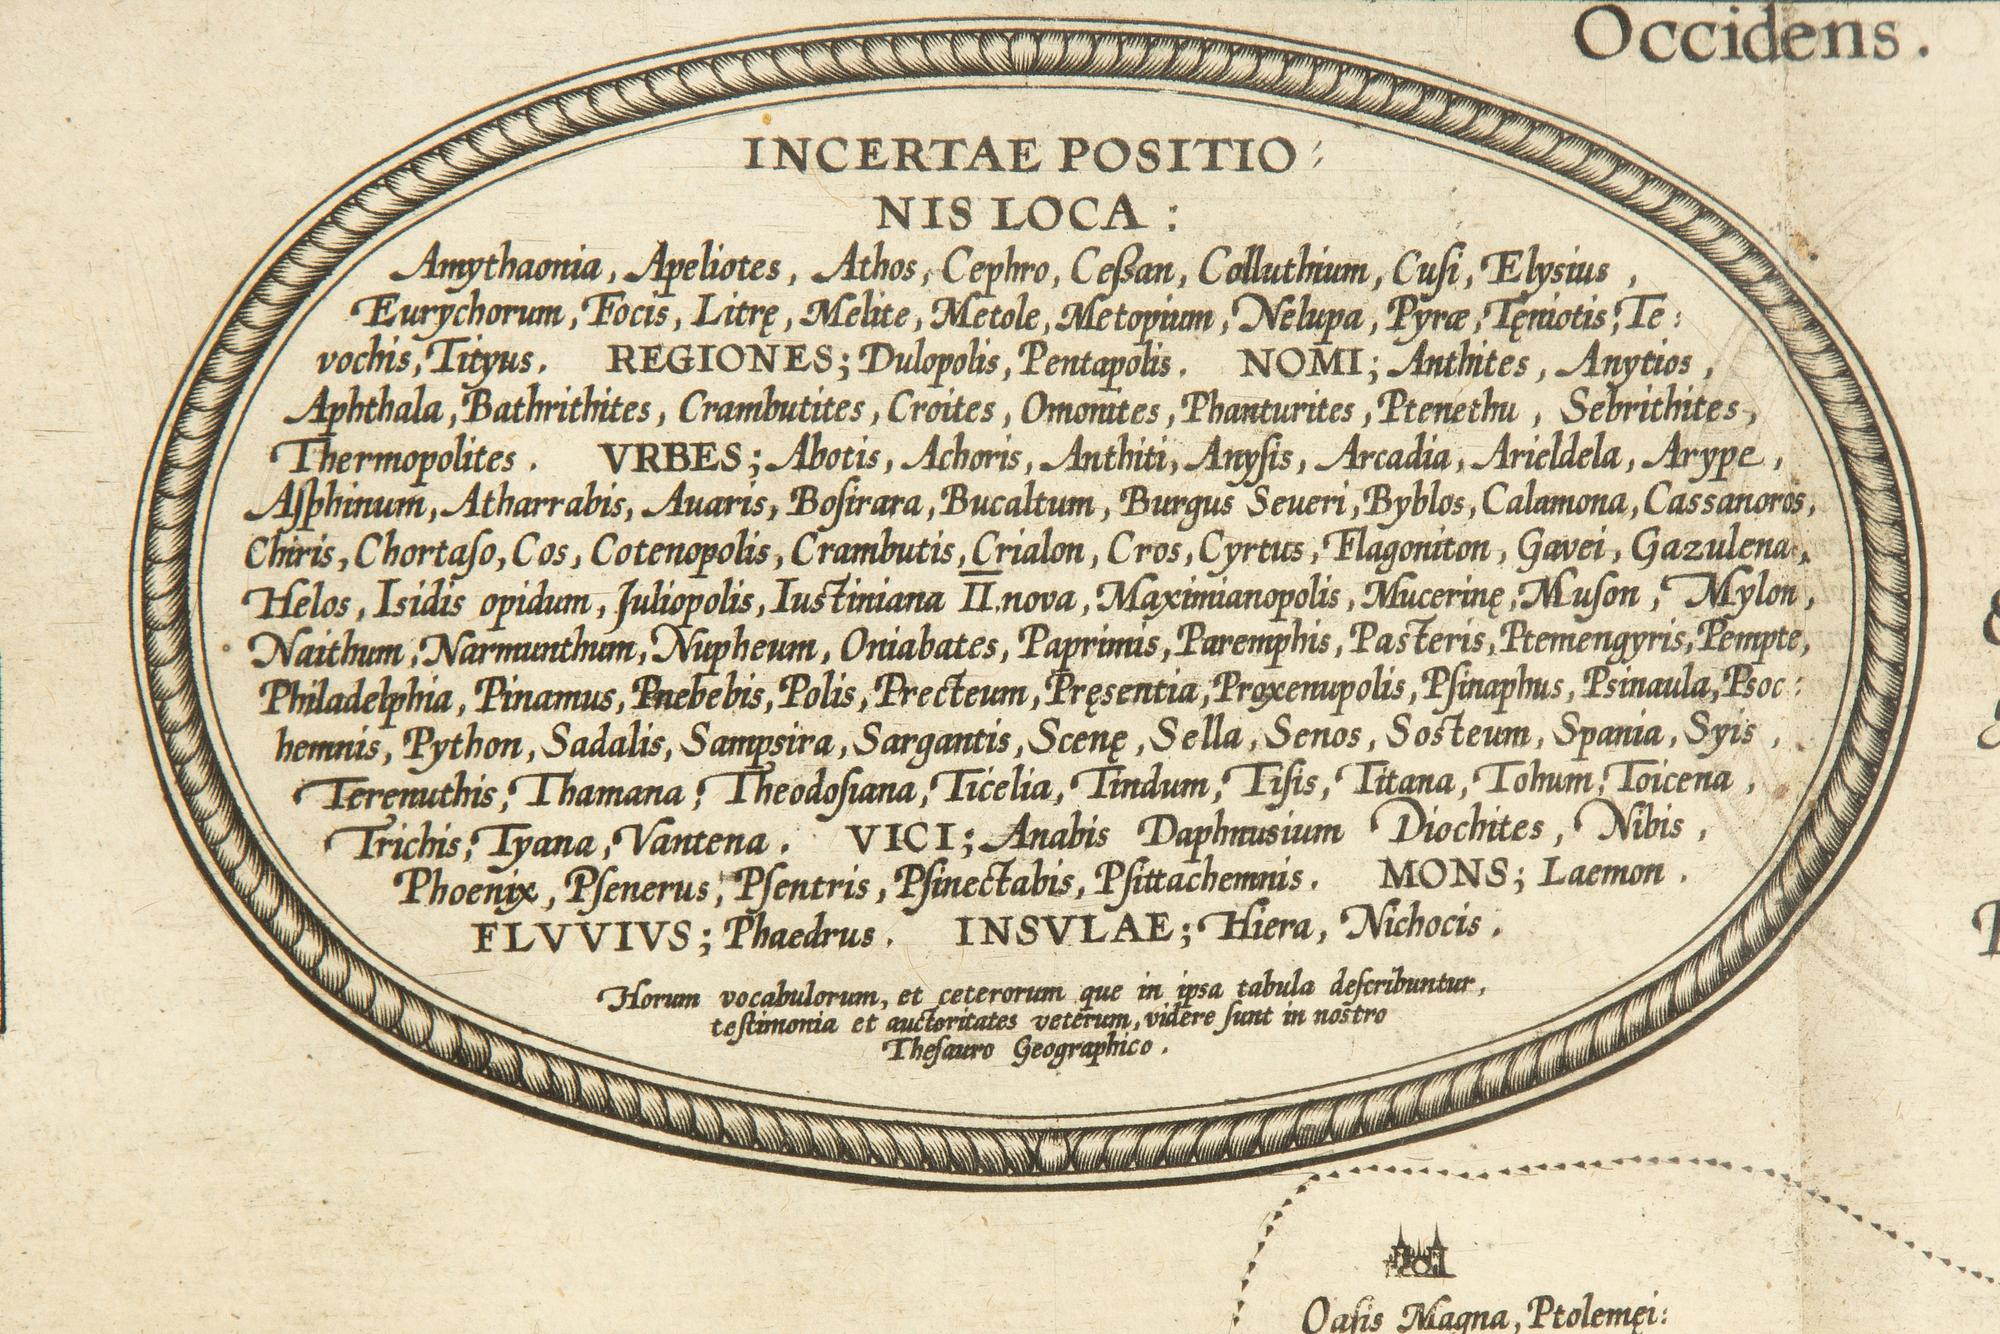 Occidens.
INCERTAE POSITIO:
NIS LOCA:
Amythaonia, Apeliotes, Athos, Cephro, Ceßan, Colluthium, Cuſi, Elysius,
Eurychorum, Focis, Litrę, Melite, Metole, Metopium, Nelupa, Pyræ, Tęniotis, Te:
vochis, Tityus. REGIONES; Dulopolis, Pentapolis. NOMI; Anthites, Anytios,
Aphthala, Bathrithites, Crambutites, Croites, Omonites, Phanturites, Ptenethu, Sebrithites,
Thermopolites. VRBES; Abotis, Achoris, Anthiti, Anyſis, Arcadia, Arieldela, Arype,
Aſphinum, Atharrabis, Auaris, Boſirara, Bucaltum, Burgus Seueri, Byblos, Calamona, Cassanoros,
Chiris, Chortaſo, Cos, Cotenopolis, Crambutis, Crialon, Cros, Cyrtus, Flagoniton, Gavei, Gazulena,
Helos, Isidis opidum, Juliopolis, Iustiniana II. nova, Maximianopolis, Mucerinę, Muſon, Mylon,
Naithum, Narmunthum, Nupheum, Oniabates, Paprimis, Paremphis, Pasteris, Ptemengyris, Pempte,
Philadelphia, Pinamus, Pnebebis, Polis, Precteum, Pręsentia, Proxenupolis, Pſinaphus, Psinaula, Psoc:
hemnis, Python, Sadalis, Sampsira, Sargantis, Scenę, Sella, Senos, Sosteum, Spania, Syis,
Terenuthis, Thamana, Theodoſiana, Ticelia, Tindum, Tiſis, Titana, Tohum, Toicena,
Trichis, Tyana, Vantena. VICI; Anabis Daphnusium Diochites, Nibis,
Phoenix, Pſenerus, Pſentris, Pſinectabis, Pſittachemnis. MONS; Laemon.
FLVVIVS; Phaedrus. INSVLAE; Hiera, Nichocis.
Horum vocabulorum, et ceterorum que in ipsa tabula deſcribuntur,
teſtimonia et auctoritates veterum, videre ſunt in nostro
Theſauro Geographico.
Oaſis Magna, Ptolemęi: